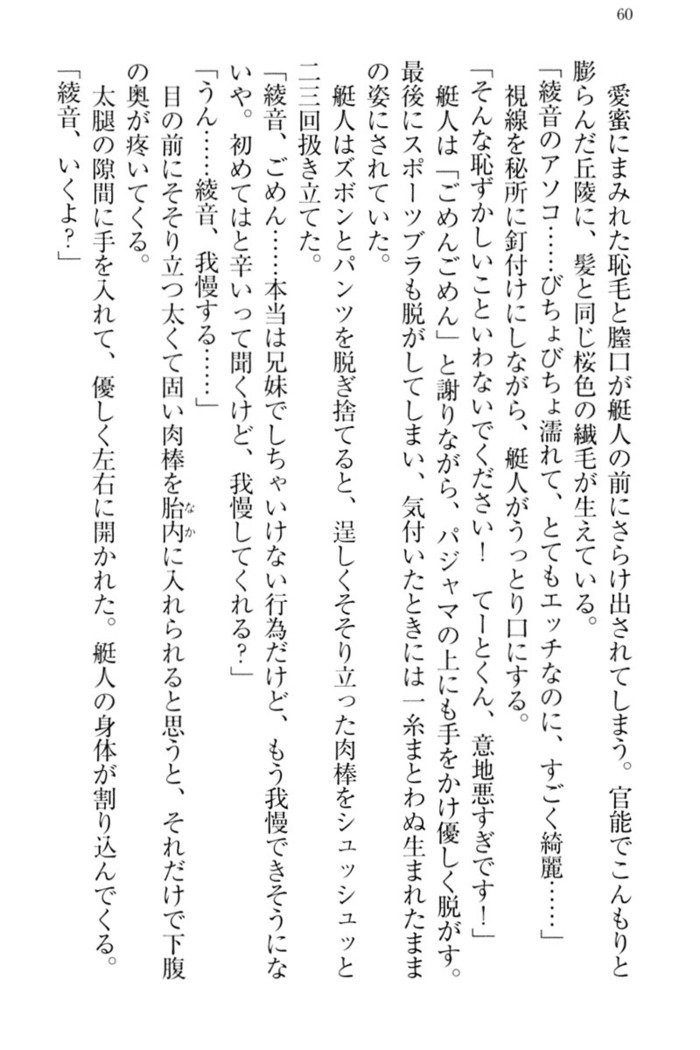 60
愛蜜にまみれた恥毛と膣口が艇人の前にさらけ出されてしまう。官能でこんもりと
膨らんだ丘陵に、髪と同じ桜色の繊毛が生えている。
「綾音のアソコ……びちょびちょ濡れて、とてもエッチなのに、すごく綺麗……」
視線を秘所に釘付けにしながら、艇人がうっとり口にする。
「そんな恥ずかしいこといわないでください！　てーとくん、意地悪すぎです！」
艇人は「ごめんごめん」と謝りながら、パジャマの上にも手をかけ優しく脱がす。
最後にスポーツブラも脱がしてしまい、気付いたときには一糸まとわぬ生まれたまま
の姿にされていた。
艇人はズボンとパンツを脱ぎ捨てると、逞しくそそり立った肉棒をシュッシュッと
二三回扱き立てた。
「綾音、ごめん……本当は兄妹でしちゃいけない行為だけど、もう我慢できそうにな
いや。初めてはと辛いって聞くけど、我慢してくれる？」
「うん……綾音、我慢する……」
目の前にそそり立つ太くて固い肉棒を胎内なかに入れられると思うと、それだけで下腹
の奥が疼いてくる。
太腿の隙間に手を入れて、優しく左右に開かれた。艇人の身体が割り込んでくる。
「綾音、いくよ？」